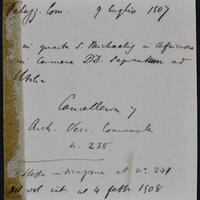 Palazz. Com. 9 luglio 1507
in quarta S. Michaelis in Africisco
in Camera DD. Sapientum ad
Utilia
Cancelleria 7
Arch. Vecc. Comunale
n. 235
indicazione al n.° 241
del vol. cit. al 4 febbr. 1508